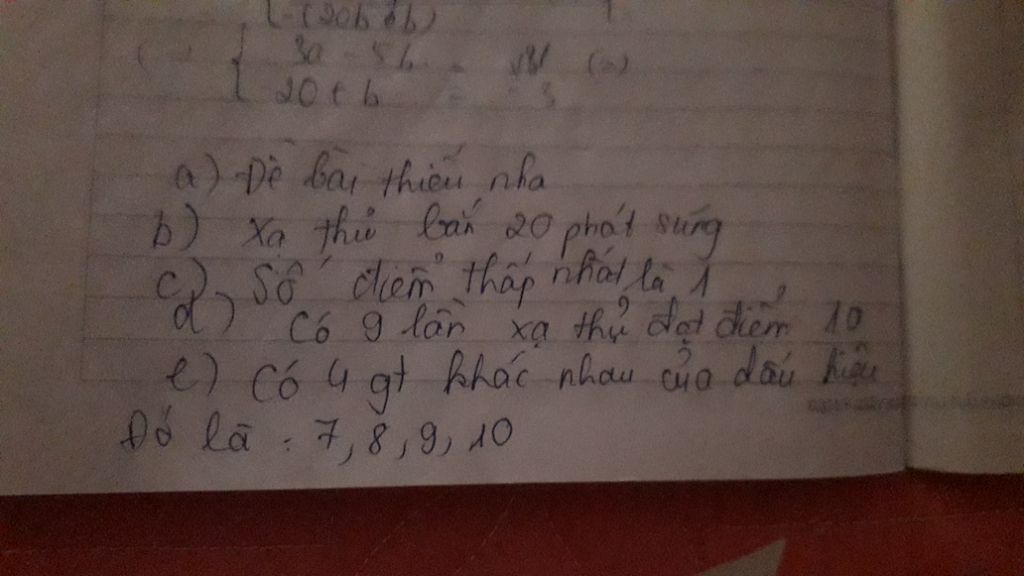 3a - 5b =
20 + b = - 3
a) Đề bài thiếu nha
b) Xạ thủ bắn 20 phát súng
c) Số điểm thấp nhất là 1
d) Có 9 lần xạ thủ đạt điểm 10
e) Có 4 gt khác nhau của dấu hiệu
Đó là : 7, 8, 9, 10